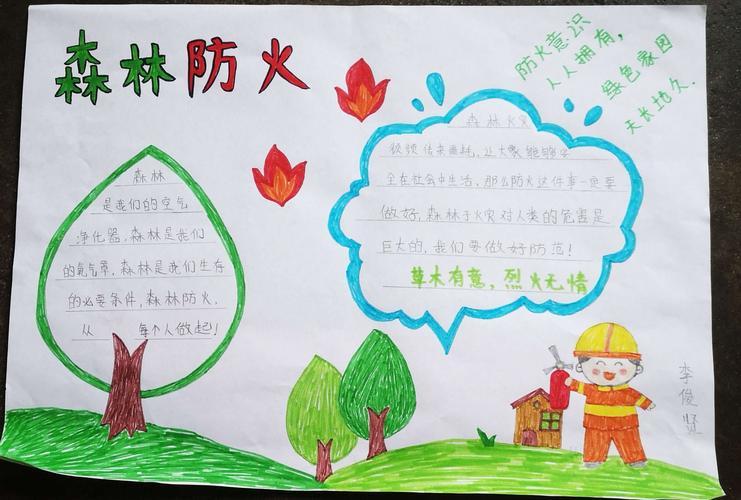 森林防火
防火意识
人人拥有，
绿色家园
天长地久.
森林
是我们的空气
净化器，森林是我们
的氧气罩，森林是我们生存
的必要条件，森林防火，
从 每个人做起！
森林火灾
频频传来噩耗，让大家能够安
全在社会中生活，那么防火这件事一定要
做好，森林于火灾对人类的危害是
巨大的，我们要做好防范！
草木有意，烈火无情
李俊贤